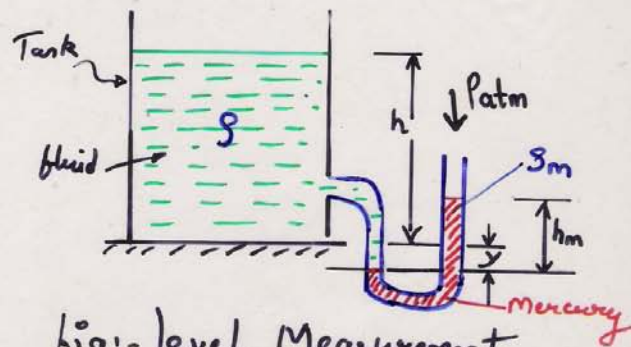 Tank
fluid
ρ
h
Patm
ρm
hm
y
Mercury
Liq. level Measurement